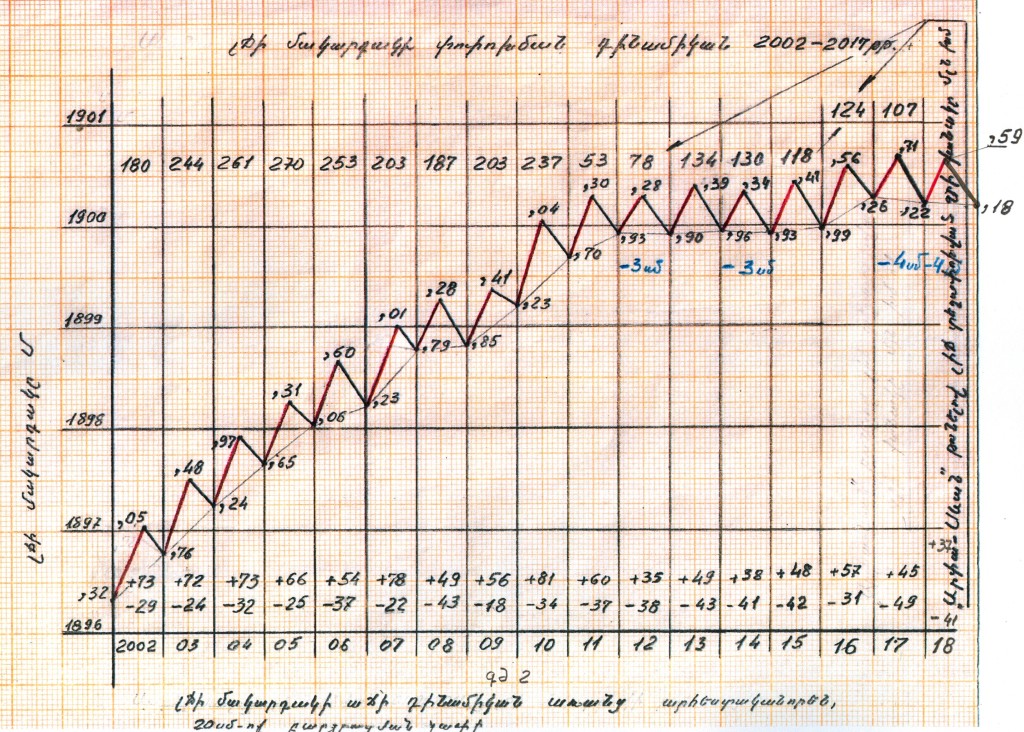 Լճի մակարդակի փոփոխման դինամիկան 2002-2017թթ.
1901
124 107
180 244 261 270 253 203 187 203 237 53 78 134 130 118
,59
,71
,56
,41
,39
,34
,30
,28
,04
1900
,26
,22
,18
,99
,93
,96
,90
,93
,70
-3սմ -3սմ -4սմ
,41
,28
,23
,01
1899
,85
,79
,60
,31
,23
,06
1898
,97
,65
,48
,24
,05
1897
,76
+37
+73 +72 +73 +66 +54 +78 +49 +56 +81 +60 +35 +49 +38 +48 +57 +45
,32
-29 -24 -32 -25 -37 -22 -43 -18 -34 -37 -38 -43 -41 -42 -31 -49
-41
1896
2002 03 04 05 06 07 08 09 10 11 12 13 14 15 16 17 18
Լճի մակարդակը մ
"Արփա-Սևան" թունելով լիճ տեղափոխված ջրի քանակը մլն խմ
գծ 2
Լճի մակարդակի աճի դինամիկան առանց արհեստականորեն,
20սմ-ով բարձրացման կասի